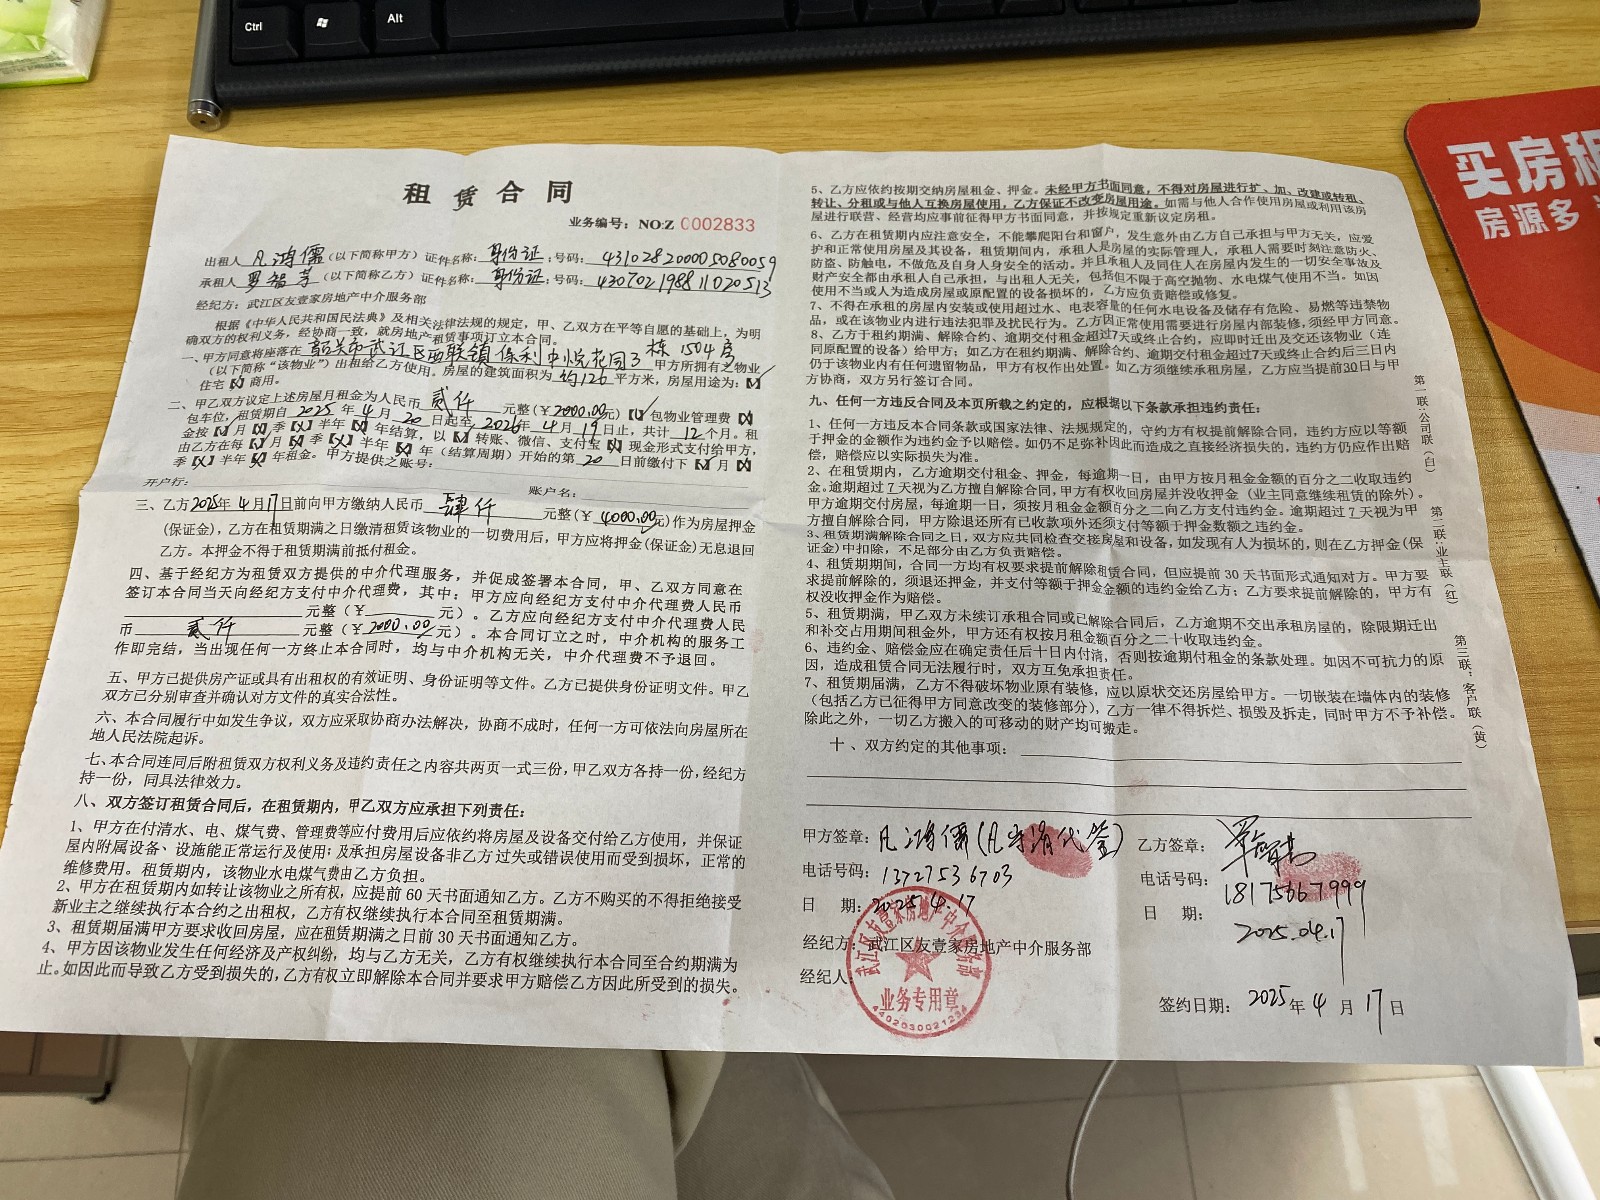 Ctrl
Alt
买房租
房源多
租赁合同
业务编号：NO:Z 0002833
出租人 凡鸿儒（以下简称甲方）证件名称：身份证；号码：431028200005080059
承租人 罗智芳（以下简称乙方）证件名称：身份证；号码：430702198811020513
经纪方：武江区友壹家房地产中介服务部
根据《中华人民共和国民法典》及相关法律法规的规定，甲、乙双方在平等自愿的基础上，为明
确双方的权利义务，经协商一致，就房地产租赁事项订立本合同。
一、甲方同意将座落在 韶关市武江区西联镇保利中悦花园3栋1504房 甲方所拥有之物业
（以下简称“该物业”）出租给乙方使用。房屋的建筑面积为 约126 平方米，房屋用途为：【√】
住宅【×】商用。
二、甲乙双方议定上述房屋月租金为人民币 贰仟 元整（￥2000.00元）【√】包物业管理费【×】
包车位，租赁期自 2025 年 4 月 20 日起至 2026年 4 月 19 日止，共计 12 个月。租
金按【√】月【×】季【×】半年【×】年结算，以【√】转账、微信、支付宝【×】现金形式支付给甲方，
由乙方在每【√】月【×】季【×】半年【×】年（结算周期）开始的第 20 日前缴付下【√】月【×】
季【×】半年【×】年租金。甲方提供之账号：
开户行： 账户名：
三、乙方2025年 4 月17日前向甲方缴纳人民币 肆仟 元整（￥4000.00元）作为房屋押金
（保证金），乙方在租赁期满之日缴清租赁该物业的一切费用后，甲方应将押金（保证金）无息退回
乙方。本押金不得于租赁期满前抵付租金。
四、基于经纪方为租赁双方提供的中介代理服务，并促成签署本合同，甲、乙双方同意在
签订本合同当天向经纪方支付中介代理费，其中：甲方应向经纪方支付中介代理费人民币
元整（￥ 元）。乙方应向经纪方支付中介代理费人民
币 贰仟 元整（￥2000.00元）。本合同订立之时，中介机构的服务工
作即完结，当出现任何一方终止本合同时，均与中介机构无关，中介代理费不予退回。
五、甲方已提供房产证或具有出租权的有效证明、身份证明等文件。乙方已提供身份证明文件。甲乙
双方已分别审查并确认对方文件的真实合法性。
六、本合同履行中如发生争议，双方应采取协商办法解决，协商不成时，任何一方可依法向房屋所在
地人民法院起诉。
七、本合同连同后附租赁双方权利义务及违约责任之内容共两页一式三份，甲乙双方各持一份，经纪方
持一份，同具法律效力。
八、双方签订租赁合同后，在租赁期内，甲乙双方应承担下列责任：
1、甲方在付清水、电、煤气费、管理费等应付费用后应依约将房屋及设备交付给乙方使用，并保证
屋内附属设备、设施能正常运行及使用；及承担房屋设备非乙方过失或错误使用而受到损坏，正常的
维修费用。租赁期内，该物业水电煤气费由乙方负担。
2、甲方在租赁期内如转让该物业之所有权，应提前 60 天书面通知乙方。乙方不购买的不得拒绝接受
新业主之继续执行本合约之出租权，乙方有权继续执行本合同至租赁期满。
3、租赁期届满甲方要求收回房屋，应在租赁期满之日前 30 天书面通知乙方。
4、甲方因该物业发生任何经济及产权纠纷，均与乙方无关，乙方有权继续执行本合同至合约期满为
止。如因此而导致乙方受到损失的，乙方有权立即解除本合同并要求甲方赔偿乙方因此所受到的损失。
5、乙方应依约按期交纳房屋租金、押金。未经甲方书面同意，不得对房屋进行扩、加、改建或转租、
转让、分租或与他人互换房屋使用，乙方保证不改变房屋用途。如需与他人合作使用房屋或利用该房
屋进行联营、经营均应事前征得甲方书面同意，并按规定重新议定房租。
6、乙方在租赁期内应注意安全，不能攀爬阳台和窗户，发生意外由乙方自己承担与甲方无关，应爱
护和正常使用房屋及其设备，租赁期间内，承租人是房屋的实际管理人，承租人需要时刻注意防火、
防盗、防触电，不做危及自身人身安全的活动。并且承租人及同住人在房屋内发生的一切安全事故及
财产安全都由承租人自己承担，与出租人无关，包括但不限于高空抛物、水电煤气使用不当。如因
使用不当或人为造成房屋或原配置的设备损坏的，乙方应负责赔偿或修复。
7、不得在承租的房屋内安装或使用超过水、电表容量的任何水电设备及储存有危险、易燃等违禁物
品，或在该物业内进行违法犯罪及扰民行为。乙方因正常使用需要进行房屋内部装修，须经甲方同意。
8、乙方于租赁期满、解除合约、逾期交付租金超过7天或终止合约，应即时迁出及交还该物业（连
同原配置的设备）给甲方；如乙方在租赁期满、解除合约、逾期交付租金超过7天或终止合约后三日内
仍于该物业内有任何遗留物品，甲方有权作出处置。如乙方须继续承租房屋，乙方应当提前30日与甲
方协商，双方另行签订合同。
九、任何一方违反合同及本页所载之约定的，应根据以下条款承担违约责任：
1、任何一方违反本合同条款或国家法律、法规规定的，守约方有权提前解除合同，违约方应以等额
于押金的金额作为违约金予以赔偿。如仍不足弥补因此而造成之直接经济损失的，违约方仍应作出赔
偿，赔偿应以实际损失为准。
2、在租赁期内，乙方逾期交付租金、押金，每逾期一日，由甲方按月租金金额的百分之二收取违约
金。逾期超过 7 天视为乙方擅自解除合同，甲方有权收回房屋并没收押金（业主同意继续租赁的除外）。
甲方逾期交付房屋，每逾期一日，须按月租金金额百分之二向乙方支付违约金。逾期超过 7 天视为甲
方擅自解除合同，甲方除退还所有已收款项外还须支付等额于押金数额之违约金。
3、租赁期满解除合同之日，双方应共同检查交接房屋和设备，如发现有人为损坏的，则在乙方押金（保
证金）中扣除，不足部分由乙方负责赔偿。
4、租赁期期间，合同一方均有权要求提前解除租赁合同，但应提前 30 天书面形式通知对方。甲方要
求提前解除的，须退还押金，并支付等额于押金金额的违约金给乙方；乙方要求提前解除的，甲方有
权没收押金作为赔偿。
5、租赁期满，甲乙双方未续订承租合同或已解除合同后，乙方逾期不交出承租房屋的，除限期迁出
和补交占用期间租金外，甲方还有权按月租金额百分之二十收取违约金。
6、违约金、赔偿金应在确定责任后十日内付清，否则按逾期付租金的条款处理。如因不可抗力的原
因，造成租赁合同无法履行时，双方互免承担责任。
7、租赁期届满，乙方不得破坏物业原有装修，应以原状交还房屋给甲方。一切嵌装在墙体内的装修
（包括乙方已征得甲方同意改变的装修部分），乙方一律不得拆烂、损毁及拆走，同时甲方不予补偿。
除此之外，一切乙方搬入的可移动的财产均可搬走。
十、双方约定的其他事项：
甲方签章：凡鸿儒（凡 代签）
电话号码：13727536703
日 期：2025.4.17
经纪方：武江区友壹家房地产中介服务部
经纪人：
武江区友壹家房地产中介服务部
业务专用章
乙方签章：
电话号码：18175667999
日 期：2025.04.17
签约日期：2025年 4 月 17 日
第一联：公司联（白）
第二联：业主联（红）
第三联：客户联（黄）